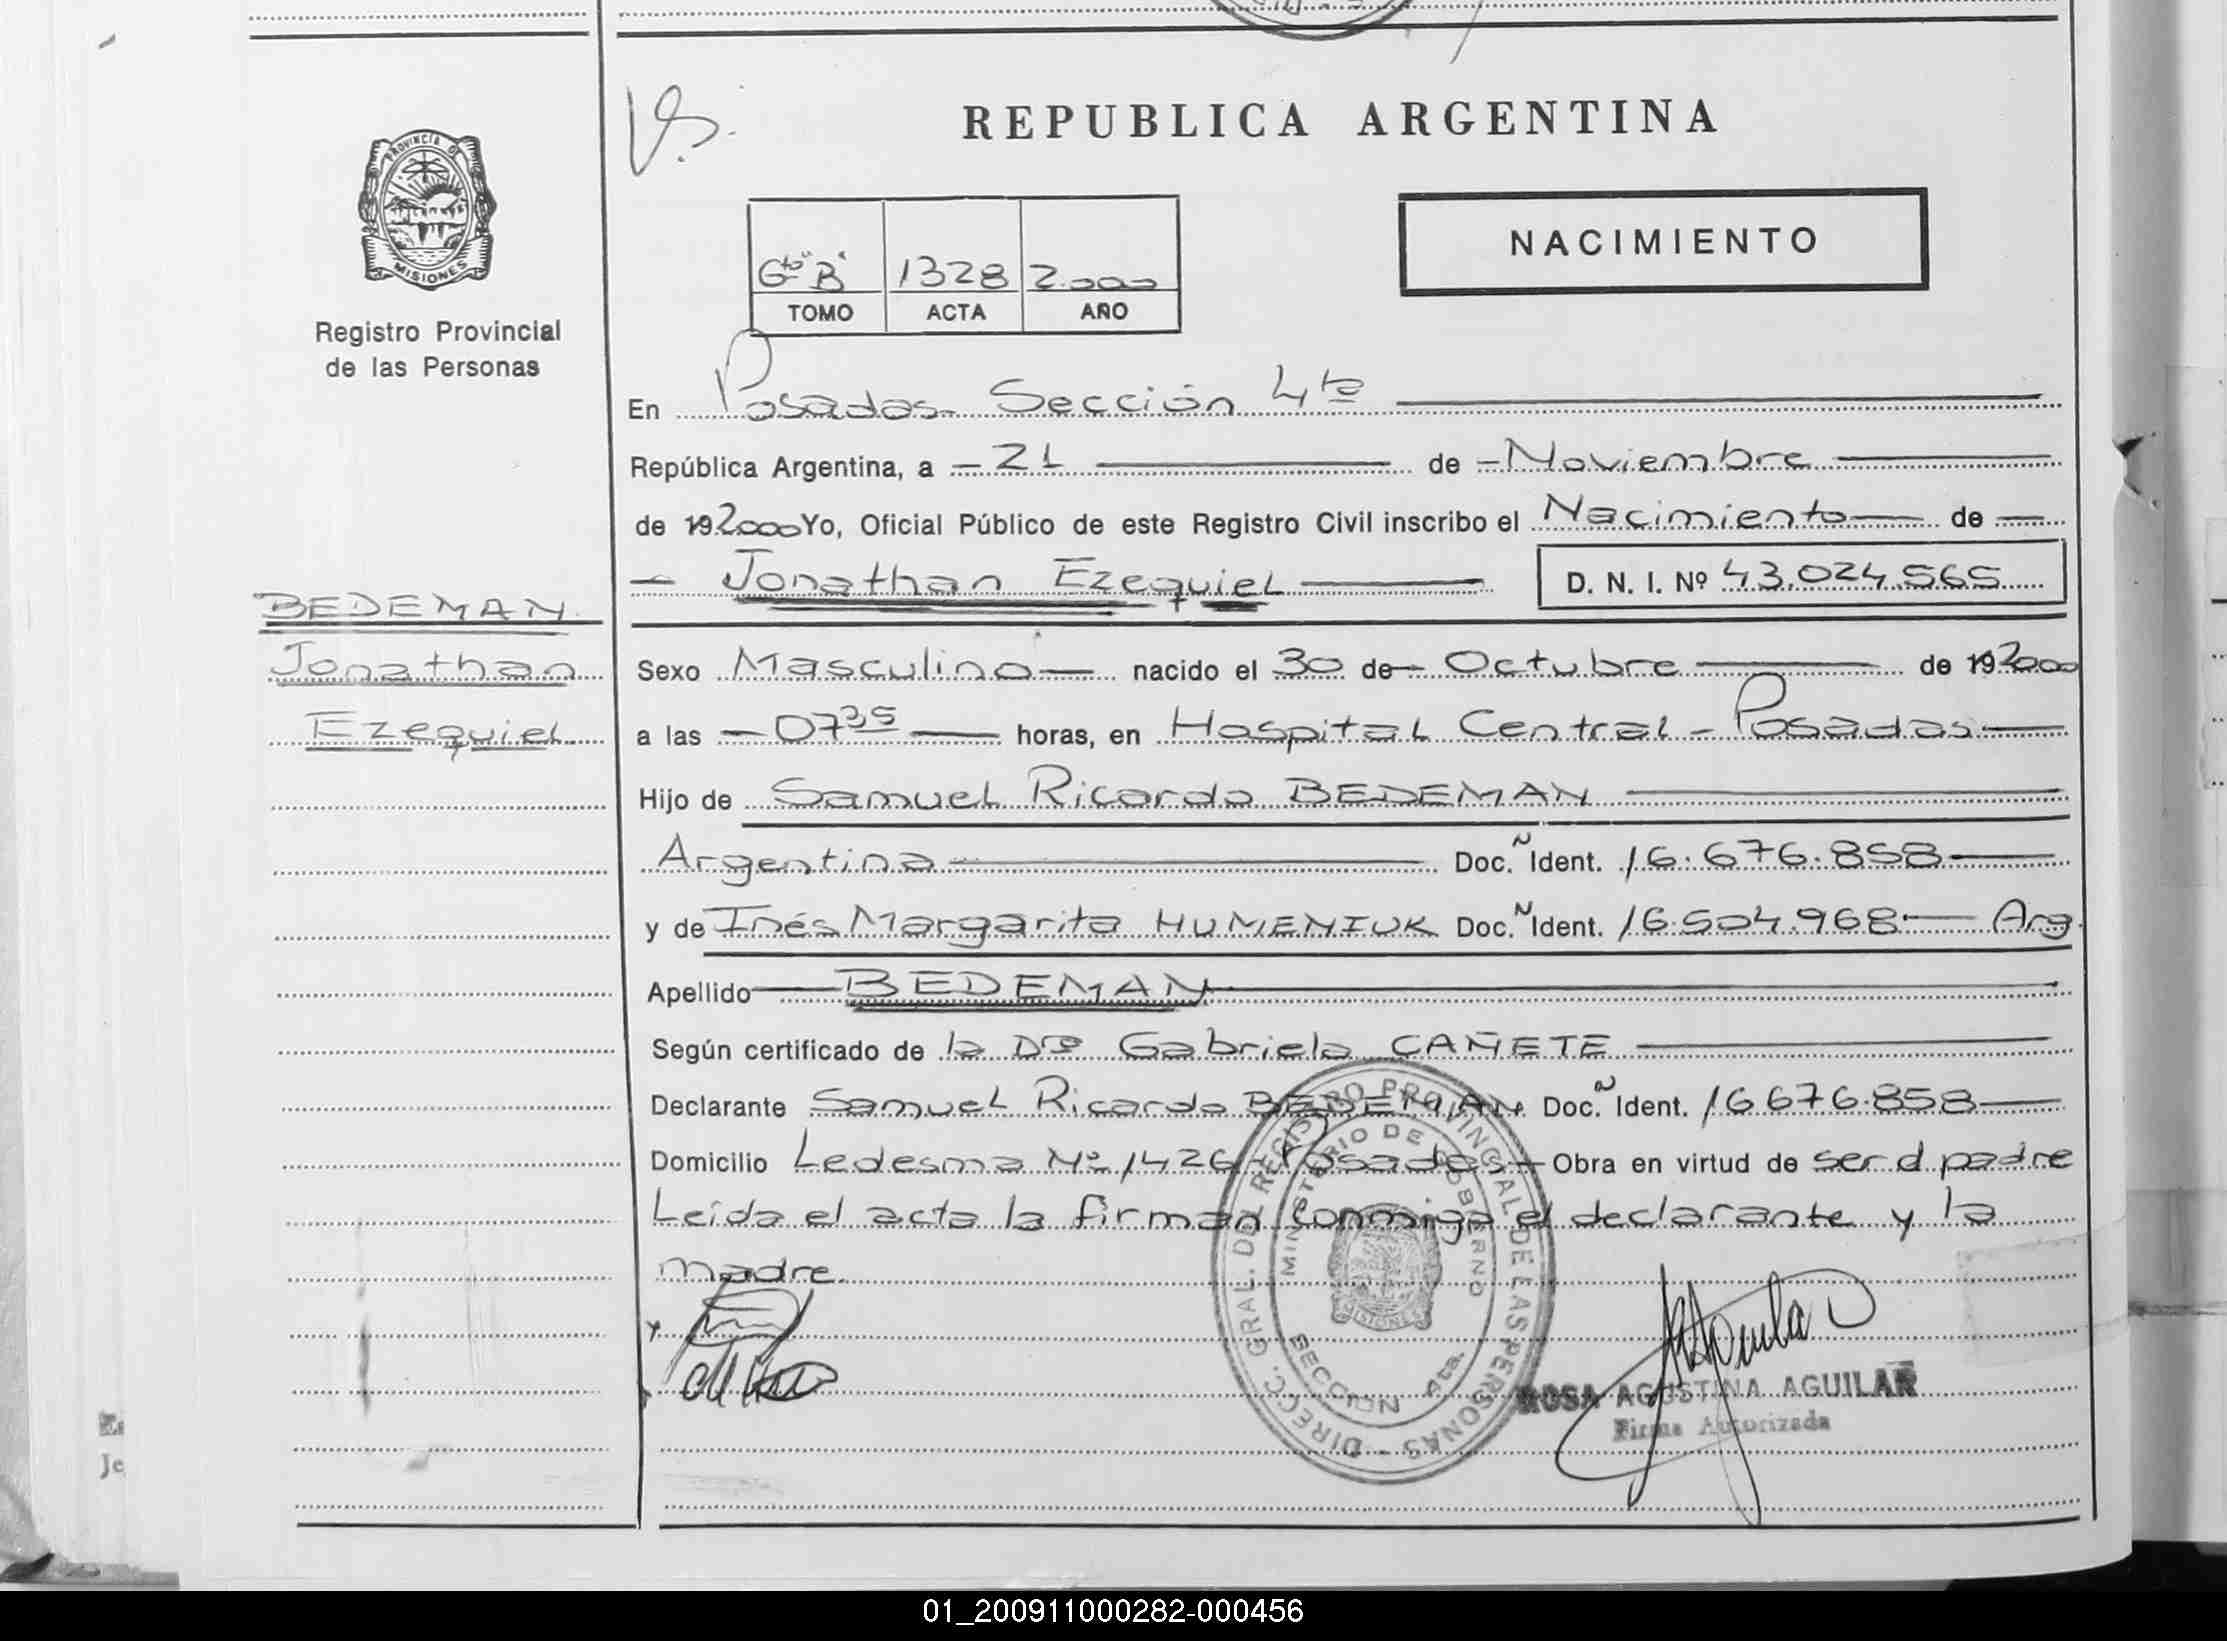 REPUBLICA ARGENTINA
PROVINCIA DE
MISIONES
Registro Provincial
de las Personas
Gto "B" 1328 2.000
TOMO ACTA AÑO
NACIMIENTO
En Posadas- Sección 4ta
República Argentina, a - 21 de - Noviembre
de 19 2000 Yo, Oficial Público de este Registro Civil inscribo el Nacimiento de
- Jonathan Ezequiel D. N. I. Nº 43.024.565
BEDEMAN
Jonathan
Ezequiel
Sexo Masculino nacido el 30 de Octubre de 19 2000
a las - 07 35 horas, en Hospital Central - Posadas
Hijo de Samuel Ricardo BEDEMAN
Argentina Doc. Ñ Ident. 16.676.858
y de Inés Margarita HUMENIUK Doc. Ñ Ident. 16.504.968 Arg.
Apellido BEDEMAN
Según certificado de la Dra Gabriela CAÑETE
Declarante Samuel Ricardo BEDEMAN Doc. Ñ Ident. 16.676.858
Domicilio Ledesma Nº 1426 Posadas - Obra en virtud de ser el padre
Leída el acta la firman conmigo el declarante y la
madre.
DIRECC. GRAL. DEL REGISTRO PROVINCIAL DE LAS PERSONAS -
MINISTERIO DE GOBIERNO
SECCION 4ta.
MISIONES
ROSA AGUSTINA AGUILAR
Firma Autorizada
01_200911000282-000456